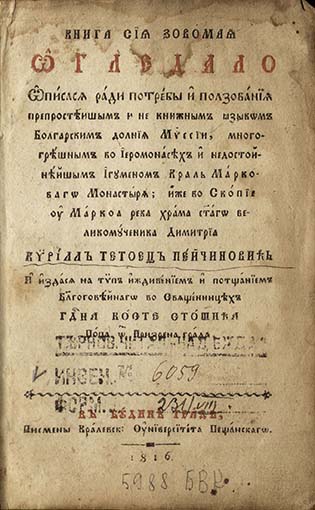 КНИГА СІѦ ЗОВОМАѦ
Ѡ҆ГЛЕДАЛО
Ѡ҆писасѧ ра́ди потре́бы и҆ ползова́нїѧ
препростѣ́йшимъ и не книжнымъ ѧзыкѡмъ
Болгарскимъ долнїѧ Мѵссїи, много-
грѣ́шнымъ во Іеромонасѣхъ и҆ недостой-
нѣ́йшимъ І҆гꙋменомъ Краль Ма́рко-
вагѡ Монастырѧ; и҆же во Ско́пїе
оу҆ Ма́ркоа река храма ст҃а́гѡ ве-
ликомꙋченика Димитрїа
КѴРІ́ЛЛЪ ТЕТОЕЦЪ ПЕ́ЙЧИНОВИЋЬ
И҆ и҆зда́сѧ на тѵпъ и҆ждивє́нїемъ и҆ потща́нїемъ
Бл҃гоговѣ́йнагѡ во Свѧщє́нницѣхъ
Гдⷭ҇на Косте Сто́шића
Попа, ѿ Призрена града
ТЪРНОВ
ИНВЕН. № 6059
231/VIII
ВЪ БꙊДИНѢ ГРАДѢ,
Писмены Кралевск: Оу҆нївереїте́та Пеща́нскагѡ.
1816.
5988 БВК